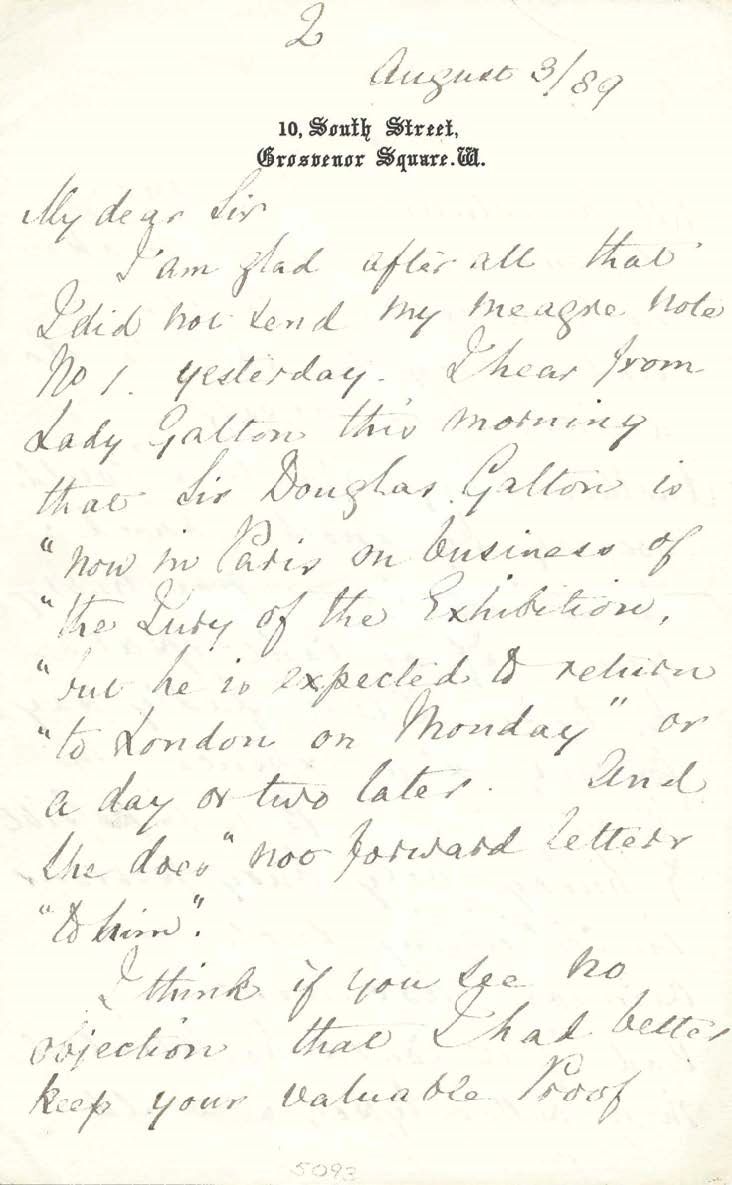 2
August 3/89
10, South Street,
Grosvenor Square. W.
My dear Sir
I am glad after all that
I did not send my meagre note
No 1. yesterday. I hear from
Lady Galton this morning
that Sir Douglas Galton is
"now in Paris on business of
"the Jury of the Exhibition,
"but he is expected to return
"to London on Monday" or
a day or two later. And
she does "not forward letters
"to him".
I think if you see no
objection that I had better
keep your valuable Proof
5093